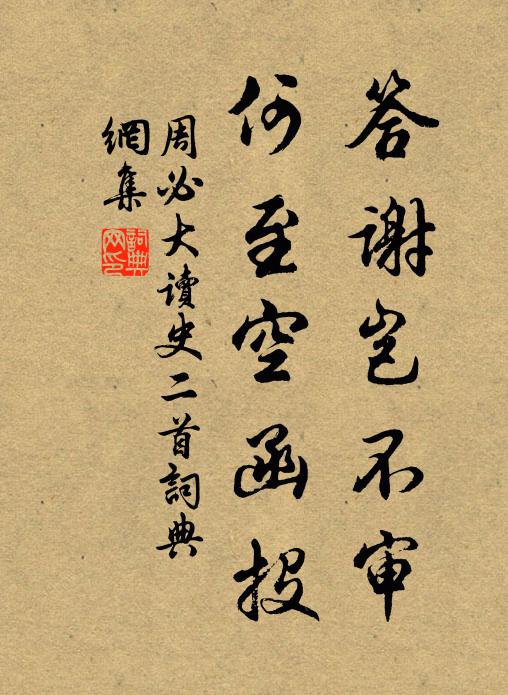 答謝豈不审
何至空函投
周必大讀史二首詞典
網集
詞典
网印